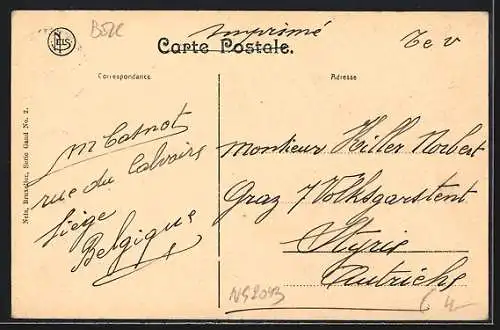 NELS
Imprimé
Carte Postale.
Correspondance
Adresse
Nels, Bruxelles, Serie Gand No. 2.
M Cosnot
rue du Calvaire
Liège
Belgique
Monsieur Killer Norbert
Graz 7 Volksgarstent
Styrie
Autriche